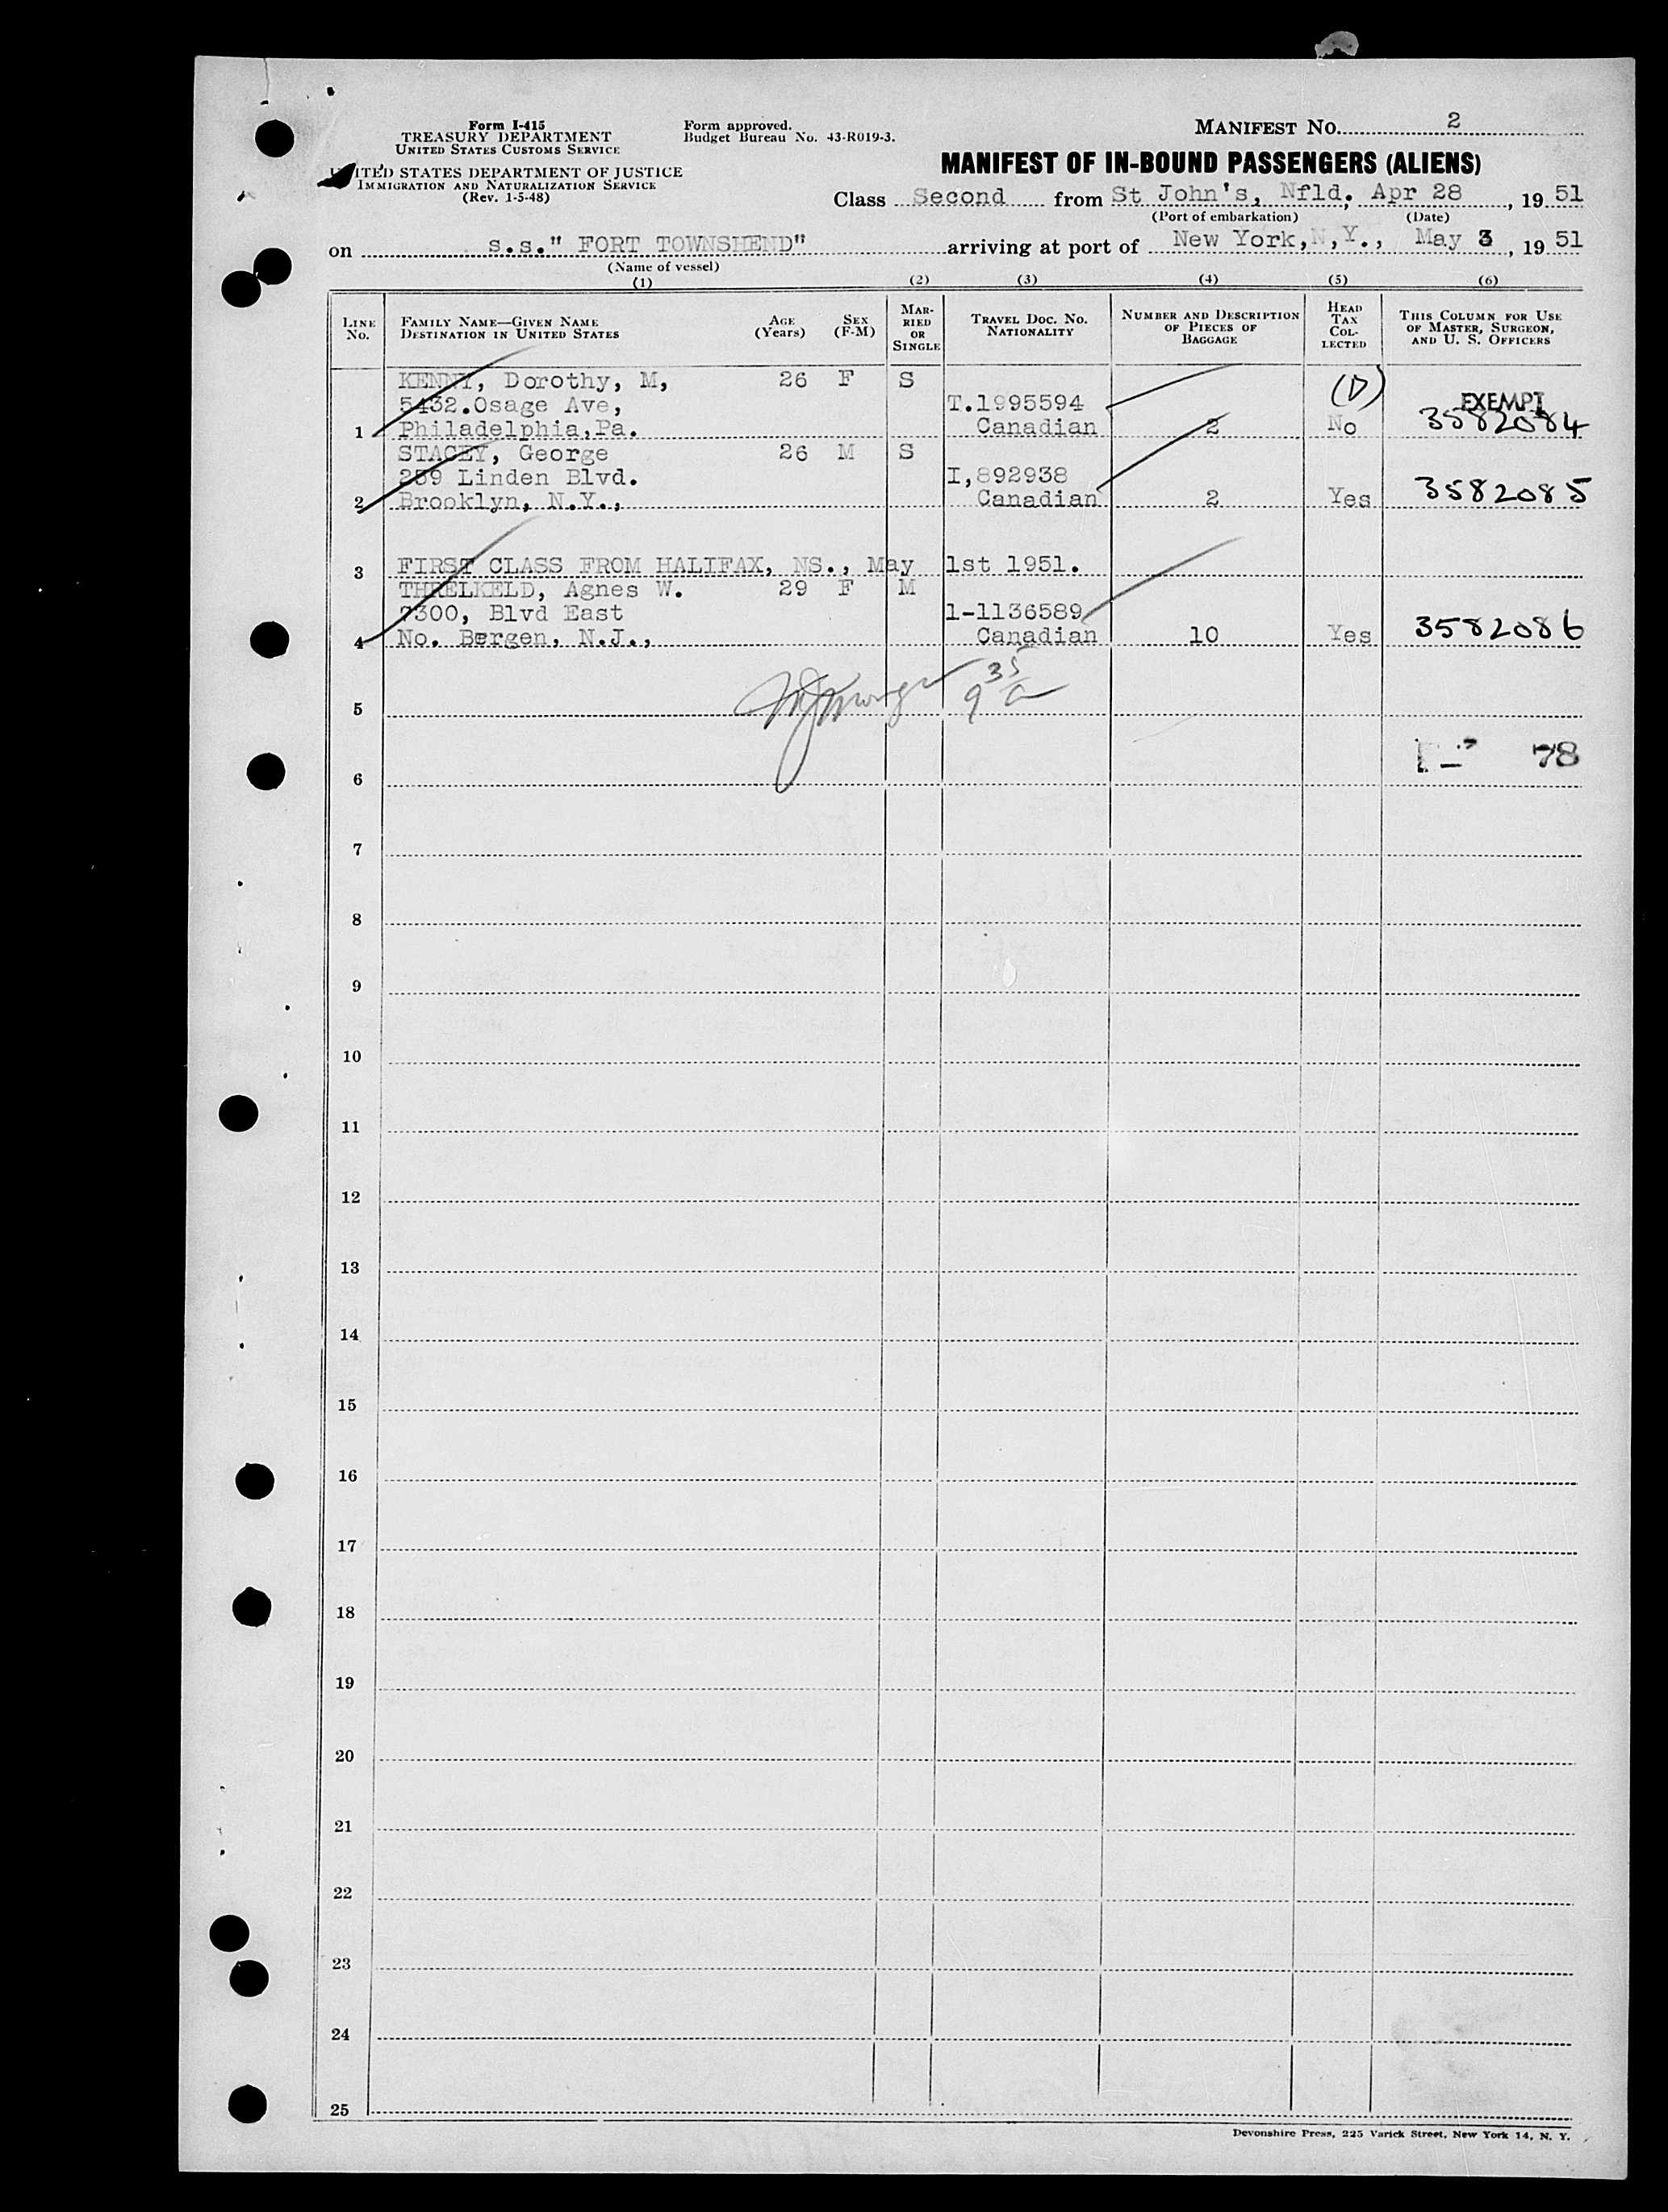 Form I-415
TREASURY DEPARTMENT
UNITED STATES CUSTOMS SERVICE
UNITED STATES DEPARTMENT OF JUSTICE
IMMIGRATION AND NATURALIZATION SERVICE
(Rev. 1-5-48)
Form approved.
Budget Bureau No. 43-R019-3.
MANIFEST NO. 2
MANIFEST OF IN-BOUND PASSENGERS (ALIENS)
Class Second from St John's, Nfld. Apr 28, 1951
(Port of embarkation) (Date)
on s.s." FORT TOWNSHEND" arriving at port of New York, N,Y., May 3, 1951
(Name of vessel)
(1) (2) (3) (4) (5) (6)
LINE No. FAMILY NAME—GIVEN NAME DESTINATION IN UNITED STATES AGE (Years) SEX (F-M) MARRIED OR SINGLE TRAVEL DOC. NO. NATIONALITY NUMBER AND DESCRIPTION OF PIECES OF BAGGAGE HEAD TAX COLLECTED THIS COLUMN FOR USE OF MASTER, SURGEON, AND U. S. OFFICERS
KENNY, Dorothy, M, 26 F S (D)
5432.Osage Ave, T.1995594 EXEMPT
1 Philadelphia,Pa. Canadian 2 No 3582084
STACEY, George 26 M S
259 Linden Blvd. I,892938
2 Brooklyn, N.Y., Canadian 2 Yes 3582085
3 FIRST CLASS FROM HALIFAX, NS., May 1st 1951.
THRELKELD, Agnes W. 29 F M
7300, Blvd East 1-1136589
4 No. Bergen, N.J., Canadian 10 Yes 3582086
5 9 35 a
78
6
7
8
9
10
11
12
13
14
15
16
17
18
19
20
21
22
23
24
25
Devonshire Press, 225 Varick Street, New York 14, N. Y.